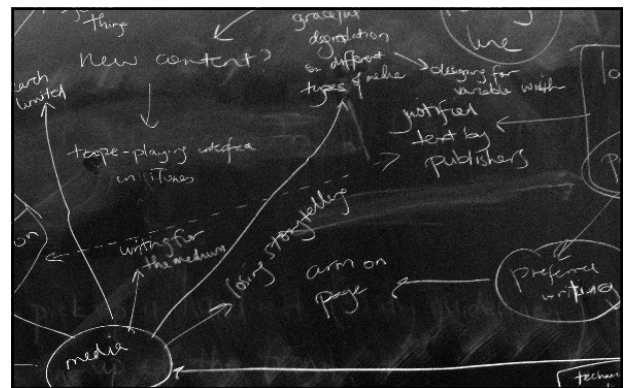 thing
new content?
graceful
degradation
on different
types of media
line
designing for
variable width
limited
justified
text by
publishers
tape-playing interface
in iTunes
on
writing for
the medium
losing storytelling
arm on
page
media